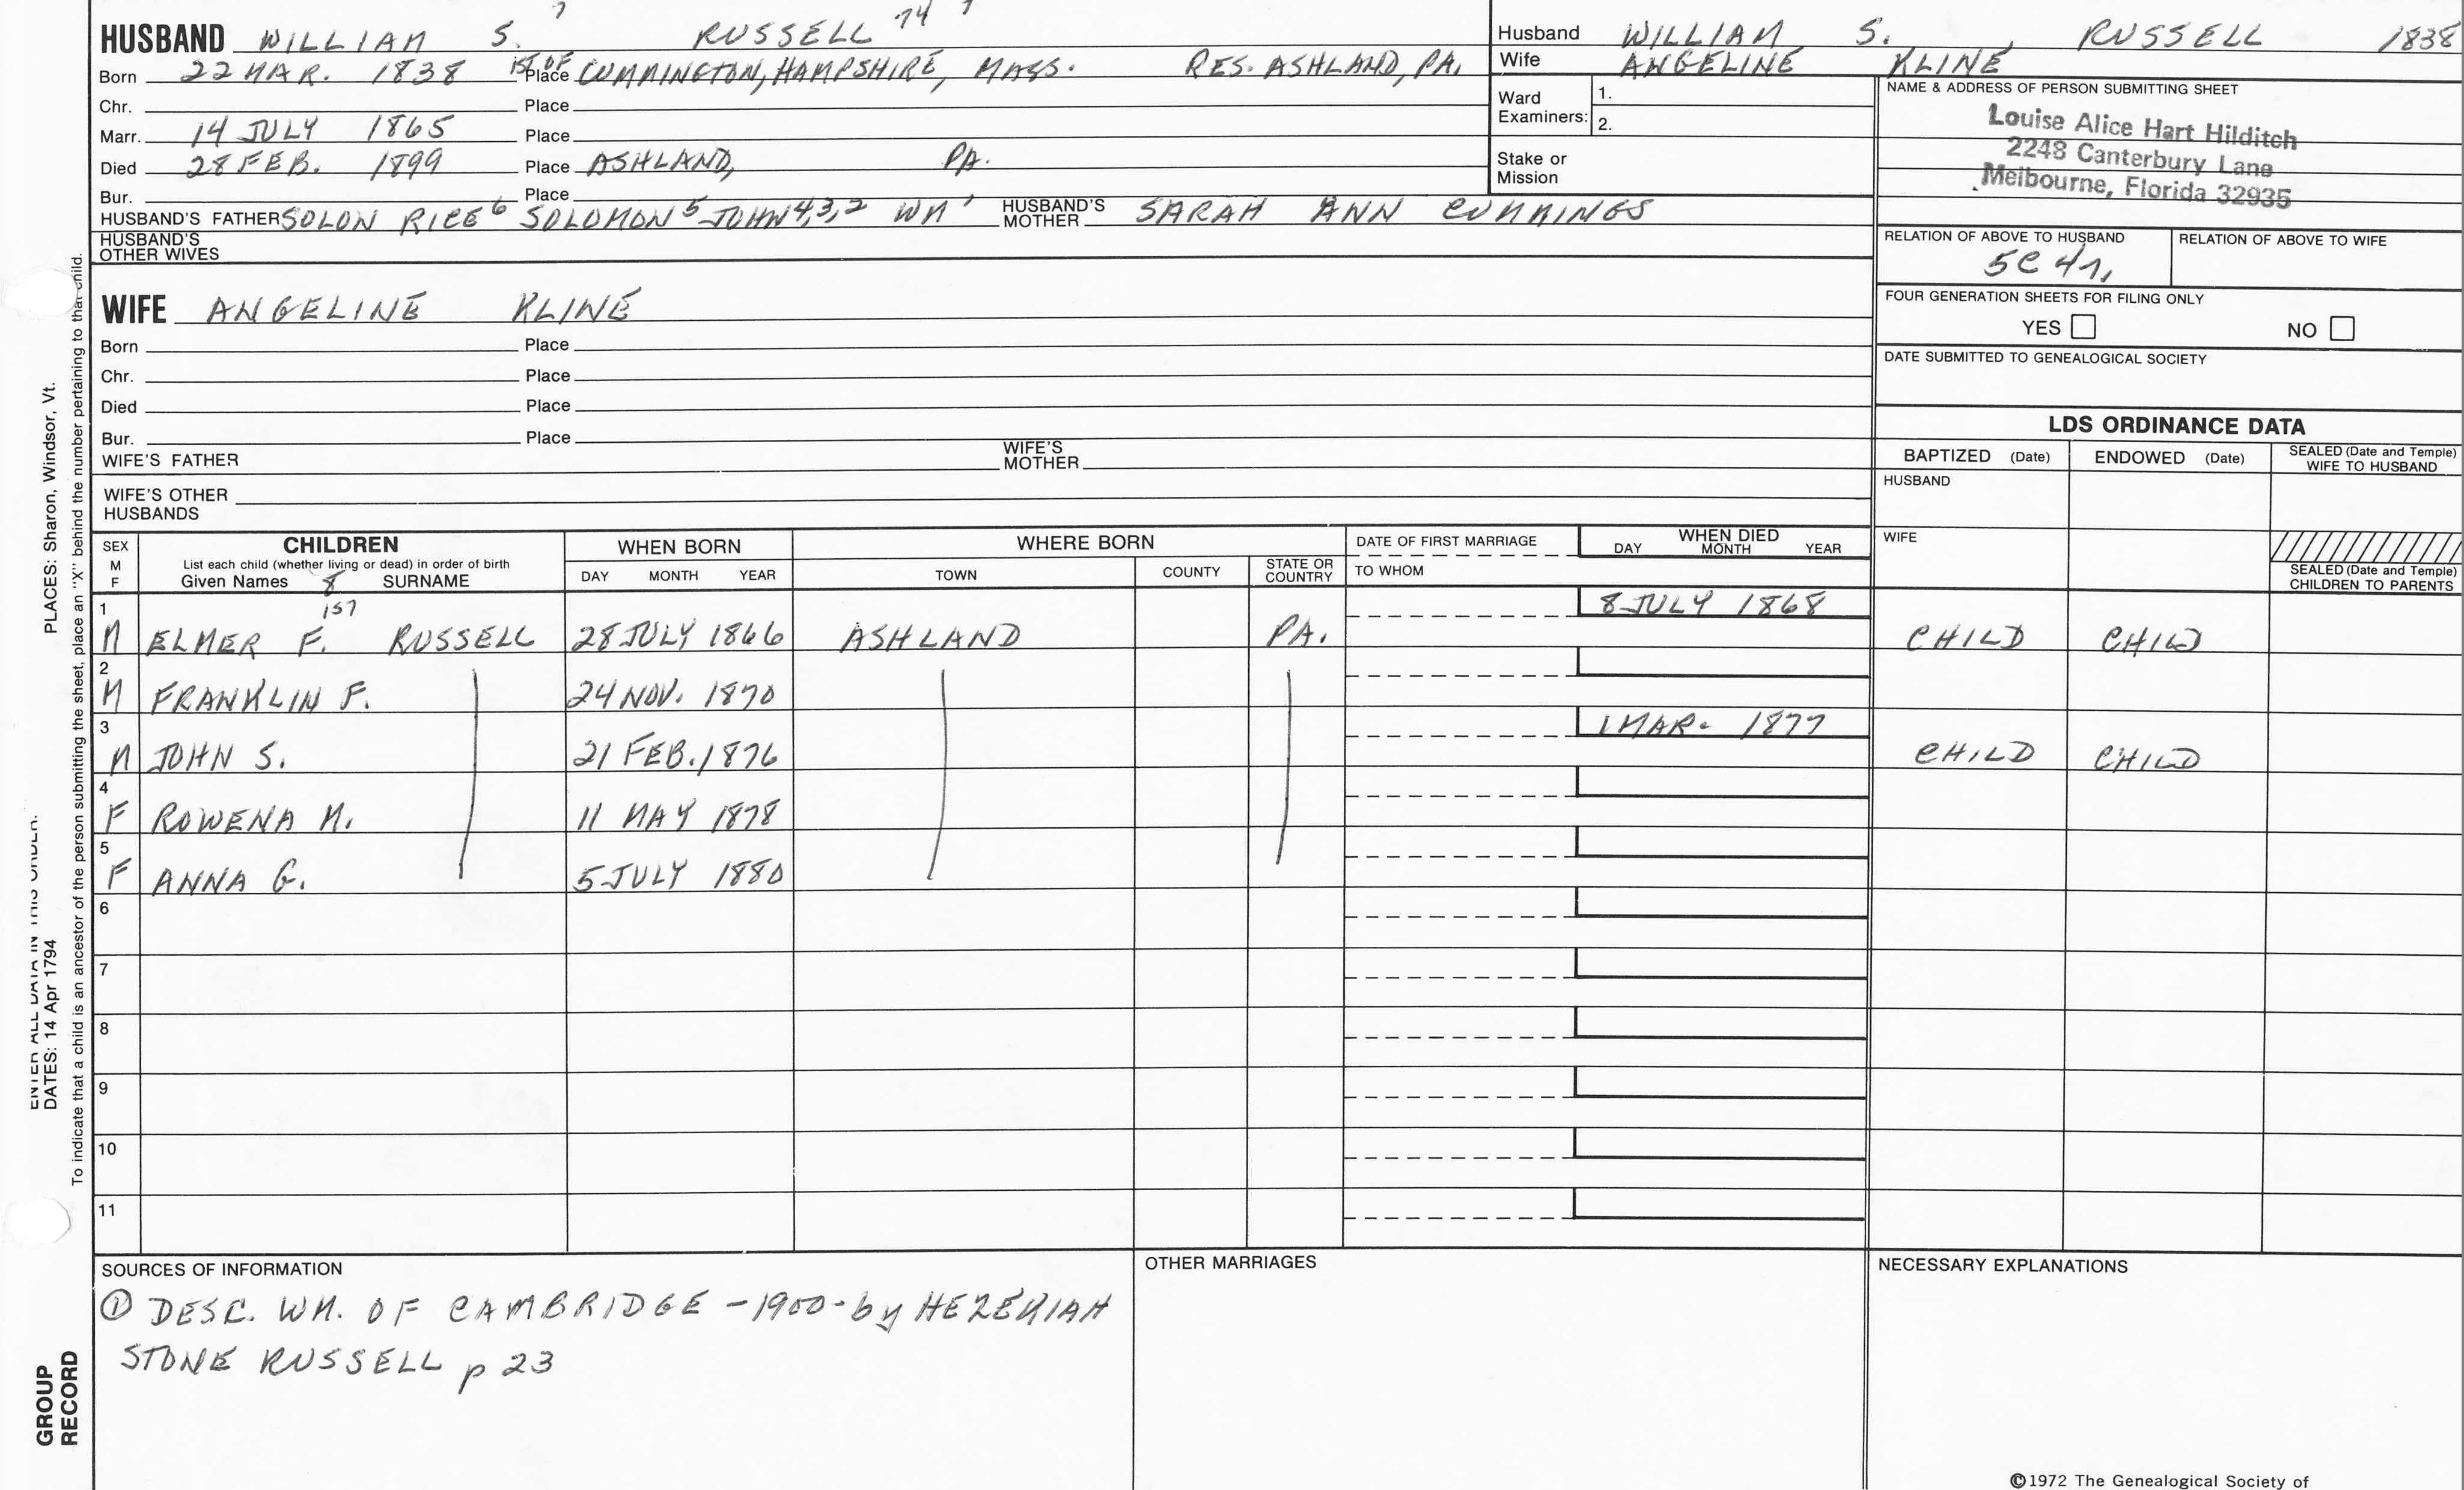 7 74 7
HUSBAND WILLIAM S. RUSSELL
Born 22 MAR. 1838 1ST OF Place CUMMINGTON, HAMPSHIRE, MASS. RES. ASHLAND, PA.
Chr. Place
Marr. 14 JULY 1865 Place
Died 28 FEB. 1899 Place ASHLAND, PA.
Bur. Place
HUSBAND'S FATHER SOLON RICE 6 SOLOMON 5 JOHN 4,3,2 WM 1 HUSBAND'S MOTHER SARAH ANN CUMMINGS
HUSBAND'S OTHER WIVES
WIFE ANGELINE KLINE
Born Place
Chr. Place
Died Place
Bur. Place
WIFE'S FATHER WIFE'S MOTHER
WIFE'S OTHER HUSBANDS
Husband WILLIAM S. RUSSELL 1838
Wife ANGELINE KLINE
Ward Examiners: 1.
2.
Stake or Mission
NAME & ADDRESS OF PERSON SUBMITTING SHEET
Louise Alice Hart Hilditch
2248 Canterbury Lane
Melbourne, Florida 32935
RELATION OF ABOVE TO HUSBAND RELATION OF ABOVE TO WIFE
5C 4r,
FOUR GENERATION SHEETS FOR FILING ONLY
YES NO
DATE SUBMITTED TO GENEALOGICAL SOCIETY
LDS ORDINANCE DATA
BAPTIZED (Date) ENDOWED (Date) SEALED (Date and Temple) WIFE TO HUSBAND
HUSBAND
WIFE
SEALED (Date and Temple) CHILDREN TO PARENTS
SEX M F
CHILDREN
List each child (whether living or dead) in order of birth
Given Names 8 SURNAME
WHEN BORN
DAY MONTH YEAR
WHERE BORN
TOWN COUNTY STATE OR COUNTRY
DATE OF FIRST MARRIAGE
TO WHOM
WHEN DIED
DAY MONTH YEAR
1 157 8 JULY 1868
M ELMER F. RUSSELL 28 JULY 1866 ASHLAND PA. CHILD CHILD
2
M FRANKLIN F. 24 NOV. 1870
3 1 MAR. 1877
M JOHN S. 21 FEB. 1876 CHILD CHILD
4
F ROWENA M. 11 MAY 1878
5
F ANNA G. 5 JULY 1880
6
7
8
9
10
11
SOURCES OF INFORMATION
① DESC. WM. OF CAMBRIDGE - 1900 - by HEZEKIAH
STONE RUSSELL p 23
OTHER MARRIAGES
NECESSARY EXPLANATIONS
©1972 The Genealogical Society of
PLACES: Sharon, Windsor, Vt.
ENTER ALL DATA IN THIS ORDER:
DATES: 14 Apr 1794
To indicate that a child is an ancestor of the person submitting the sheet, place an "X" behind the number pertaining to that child.
GROUP
RECORD